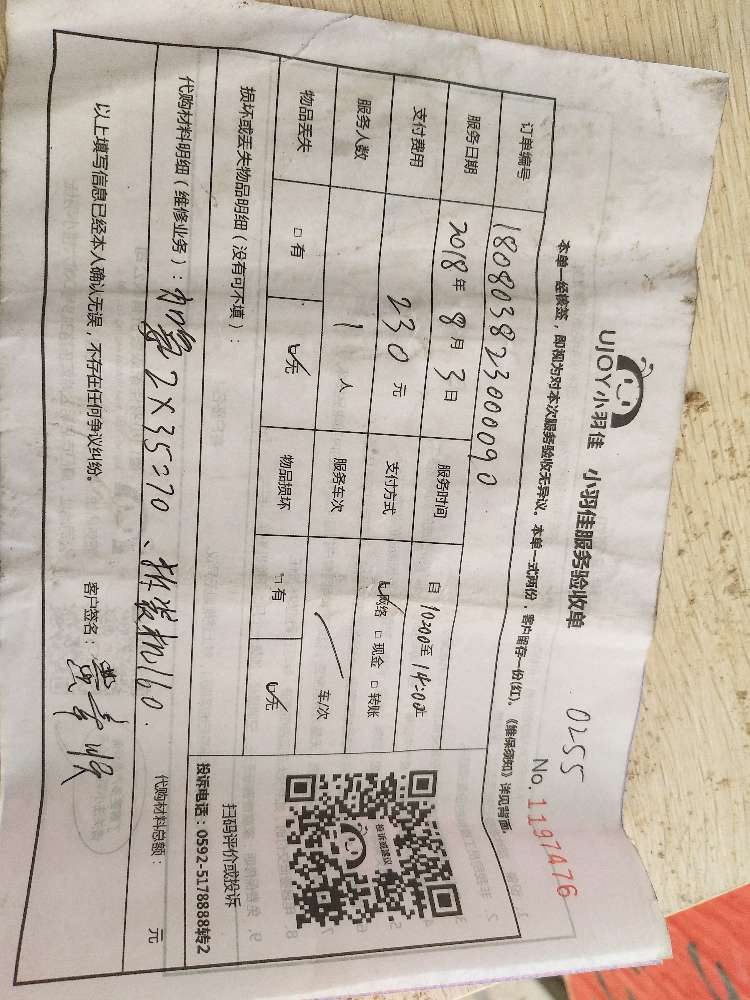 UJOY小羽佳 小羽佳服务验收单
0255
No.1197476
本单一经核签，即视为对本次服务验收无异议。本单一式两份，客户留存一份(红)。《维保须知》详见背面。
订单编号 18080382300090
服务日期 2018年8月3日 服务时间 自10:00至14:00止
支付费用 230元 支付方式 ☑网络 □现金 □转账
服务人数 1人 服务车次 / 车/次
物品丢失 □有 ☑无 物品损坏 □有 ☑无
投诉或建议
扫码评价或投诉
投诉电话：0592-5178888转2
损坏或丢失物品明细（没有可不填）：
代购材料明细（维修业务）： 2×35=70、拆装机160.
代购材料总额： 元
以上填写信息已经本人确认无误，不存在任何争议纠纷。
客户签名：